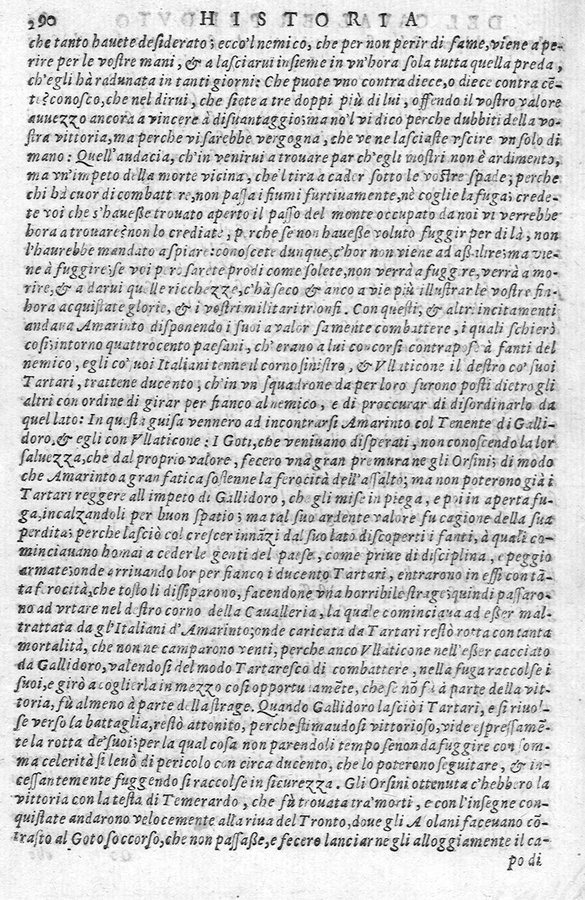 290 HISTORIA
che tanto hauete desiderato; ecco'l nemico, che per non perir di fame, viene a pe-
rire per le vostre mani, & a lasciarui insieme in vn'hora sola tutta quella preda,
ch'egli hà radunata in tanti giorni: Che puote vno contra diece, o diece contra cē-
to? conosco, che nel dirui, che siete a tre doppi più di lui, offendo il vostro valore
auuezzo ancora à vincere à disuantaggio; ma no'l vi dico perche dubbiti della vo-
stra vittoria, ma perche vi sarebbe vergogna, che ve ne lasciaste vscire vn solo di
mano: Quell'audacia, ch'in venirui a trouare par ch'egli mostri non è ardimento,
ma vn'impeto della morte vicina, che'l tira a cader sotto le vostre spade; perche
chi hà cuor di combattere, non passa i fiumi furtiuamente, nè coglie la fuga; crede-
te voi che s'hauesse trouato aperto il passo del monte occupato da noi vi verrebbe
hora a trouare? non lo crediate, perche se non hauesse voluto fuggir per di là, non
l'haurebbe mandato a spiare: conoscete dunque, c'hor non viene ad assalire; ma vie-
ne à fuggire; se voi però sarete prodi come solete, non verrà a fuggire, verrà a mo-
rire, & a darui quelle ricchezze, c'hà seco & anco a vie più illustrar le vostre fin-
hora acquistate glorie, & i vostri militari trionfi. Con questi, & altri incitamenti
andaua Amarinto disponendo i suoi a valorosamente combattere, i quali schierò
così; intorno quattrocento paesani, ch'erano a lui concorsi contrapose à fanti del
nemico, egli co' suoi Italiani tenne il corno sinistro, & Vllaticone il destro co' suoi
Tartari, trattene ducento, ch'in vn squadrone da per loro furono posti dietro gli
altri con ordine di girar per fianco al nemico, e di proccurar di disordinarlo da
quel lato: In questa guisa vennero ad incontrarsi Amarinto col Tenente di Galli-
doro, & egli con Vllaticone: I Goti, che veniuano disperati, non conoscendo la lor
saluezza, che dal proprio valore, fecero vna gran premura ne gli Orsini; di modo
che Amarinto a gran fatica sostenne la ferocità dell'assalto; ma non poterono già i
Tartari reggere all'impeto di Gallidoro, che gli mise in piega, e poi in aperta fu-
ga, incalzandoli per buon spatio; ma tal suo ardente valore fu cagione della sua
perdita; perche lasciò col crescer innāzi dal suo lato discoperti i fanti, à quali co-
minciauano homai a ceder le genti del paese, come priue di disciplina, e peggio
armate; onde arriuando lor per fianco i ducento Tartari, entrarono in essi con tā-
ta ferocità, che tosto li dissiparono, facendone vna horribile strage; quindi passaro-
no ad vrtare nel destro corno della Caualleria, la quale cominciaua ad esser mal-
trattata da gl'Italiani d'Amarinto; onde caricata da Tartari restò rotta con tanta
mortalità, che non ne camparono venti, perche anco Vllaticone nell'esser cacciato
da Gallidoro, valendosi del modo Tartaresco di combattere, nella fuga raccolse i
suoi, e girò a coglierla in mezzo così opportunamēte, che se nō fù à parte della vit-
toria, fù almeno à parte della strage. Quando Gallidoro lasciò i Tartari, e si riuol-
se verso la battaglia, restò attonito, perche stimandosi vittorioso, vide espressamē-
te la rotta de' suoi; per la qual cosa non parendoli tempo se non da fuggire con som-
ma celerità si leuò di pericolo con circa ducento, che lo poterono seguitare, & in-
cessantemente fuggendo si raccolse in sicurezza. Gli Orsini ottenuta c'hebbero la
vittoria con la testa di Temerardo, che fù trouata tra' morti, e con l'insegne con-
quistate andarono velocemente alla riua del Tronto, doue gli Asolani faceuano cō-
trasto al Goto soccorso, che non passasse, e fecero lanciar ne gli alloggiamente il ca-
po di